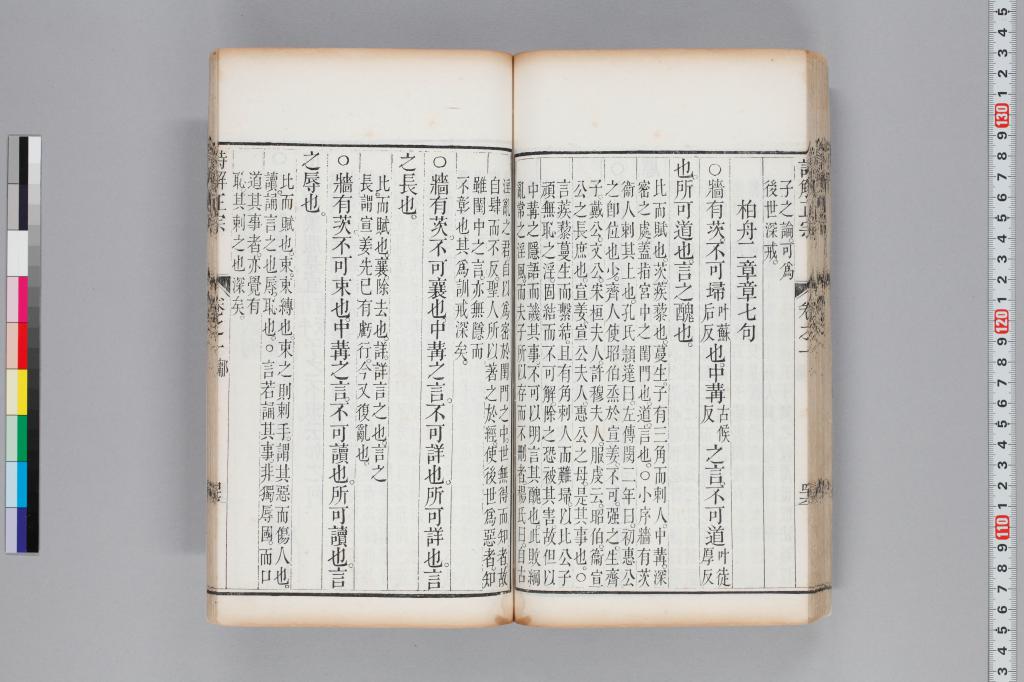 子之論可爲
後世深戒
柏舟二章章七句
○牆有茨不可埽叶蘇后反也中冓古候反之言不可道叶徒厚反
也所可道也言之醜也
比而賦也茨蒺藜也蔓生子有三角而刺人中冓深
密之處蓋指宮中之閨門也道言也○小序牆有茨
衞人刺其上也孔氏頴達曰左傳閔二年曰初惠公
之卽位也少齊人使昭伯烝於宣姜不可强之生齊
子戴公文公宋桓夫人許穆夫人服虔云昭伯衞宣
公之長庶也宣姜宣公夫人惠公之母是其事也○
言蒺藜蔓生而繫結且有角刺人而難埽以比公子
頑無恥之淫固結而不可解除之恐被其害故但以
中冓之隱語而譏其事不可以明言其醜也此敗綱
亂常之淫風而夫子所以存而不刪者楊氏曰自古
淫亂之君自以爲密於閨門之中世無得而知者故
自肆而不反聖人所以著之於經使後世爲惡者知
雖閨中之言亦無隱而
不彰也其爲訓戒深矣
○牆有茨不可襄也中冓之言不可詳也所可詳也言
之長也
比而賦也襄除去也詳詳言之也言之
長謂宣姜先已有虧行今又復亂也
○牆有茨不可束也中冓之言不可讀也所可讀也言
之辱也
比而賦也束束縛也束之則刺手謂其惡而傷人也
讀誦言之也辱恥也○言若誦其事非獨辱國而口
道其事者亦覺有
恥其刺之也深矣
詩解正宗
卷之一 鄘